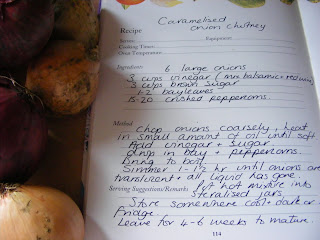 Caramelised
Recipe onion chutney
Serves: Equipment:
Cooking Time:
Oven Temperature:
Ingredients: 6 large onions
3 cups vinegar (mix balsamic + red wine)
3 cups brown sugar
1-2 bayleaves
15-20 crushed peppercorns.
Method
Chop onions coarsely, heat
in small amount of oil until soft
Add vinegar + sugar.
drop in bay + peppercorns.
Bring to boil
Simmer 1-1½ hr until onions are
translucent + all liquid has gone.
Serving Suggestion/Remarks Put hot mixture into
sterilised jars
Store somewhere cool + dark or
fridge.
Leave for 4-6 weeks to mature.
114